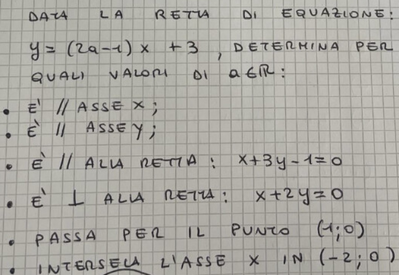 DATA LA RETTA DI EQUAZIONE:
y = (2a-1)x +3, DETERMINA PER
QUALI VALORI DI a∈ℝ:
• E' // ASSE X;
• È // ASSE Y;
• È // ALLA RETTA: x+3y-1=0
• E' ⊥ ALLA RETTA: x+2y=0
• PASSA PER IL PUNTO (1;0)
• INTERSECA L'ASSE X IN (-2;0)